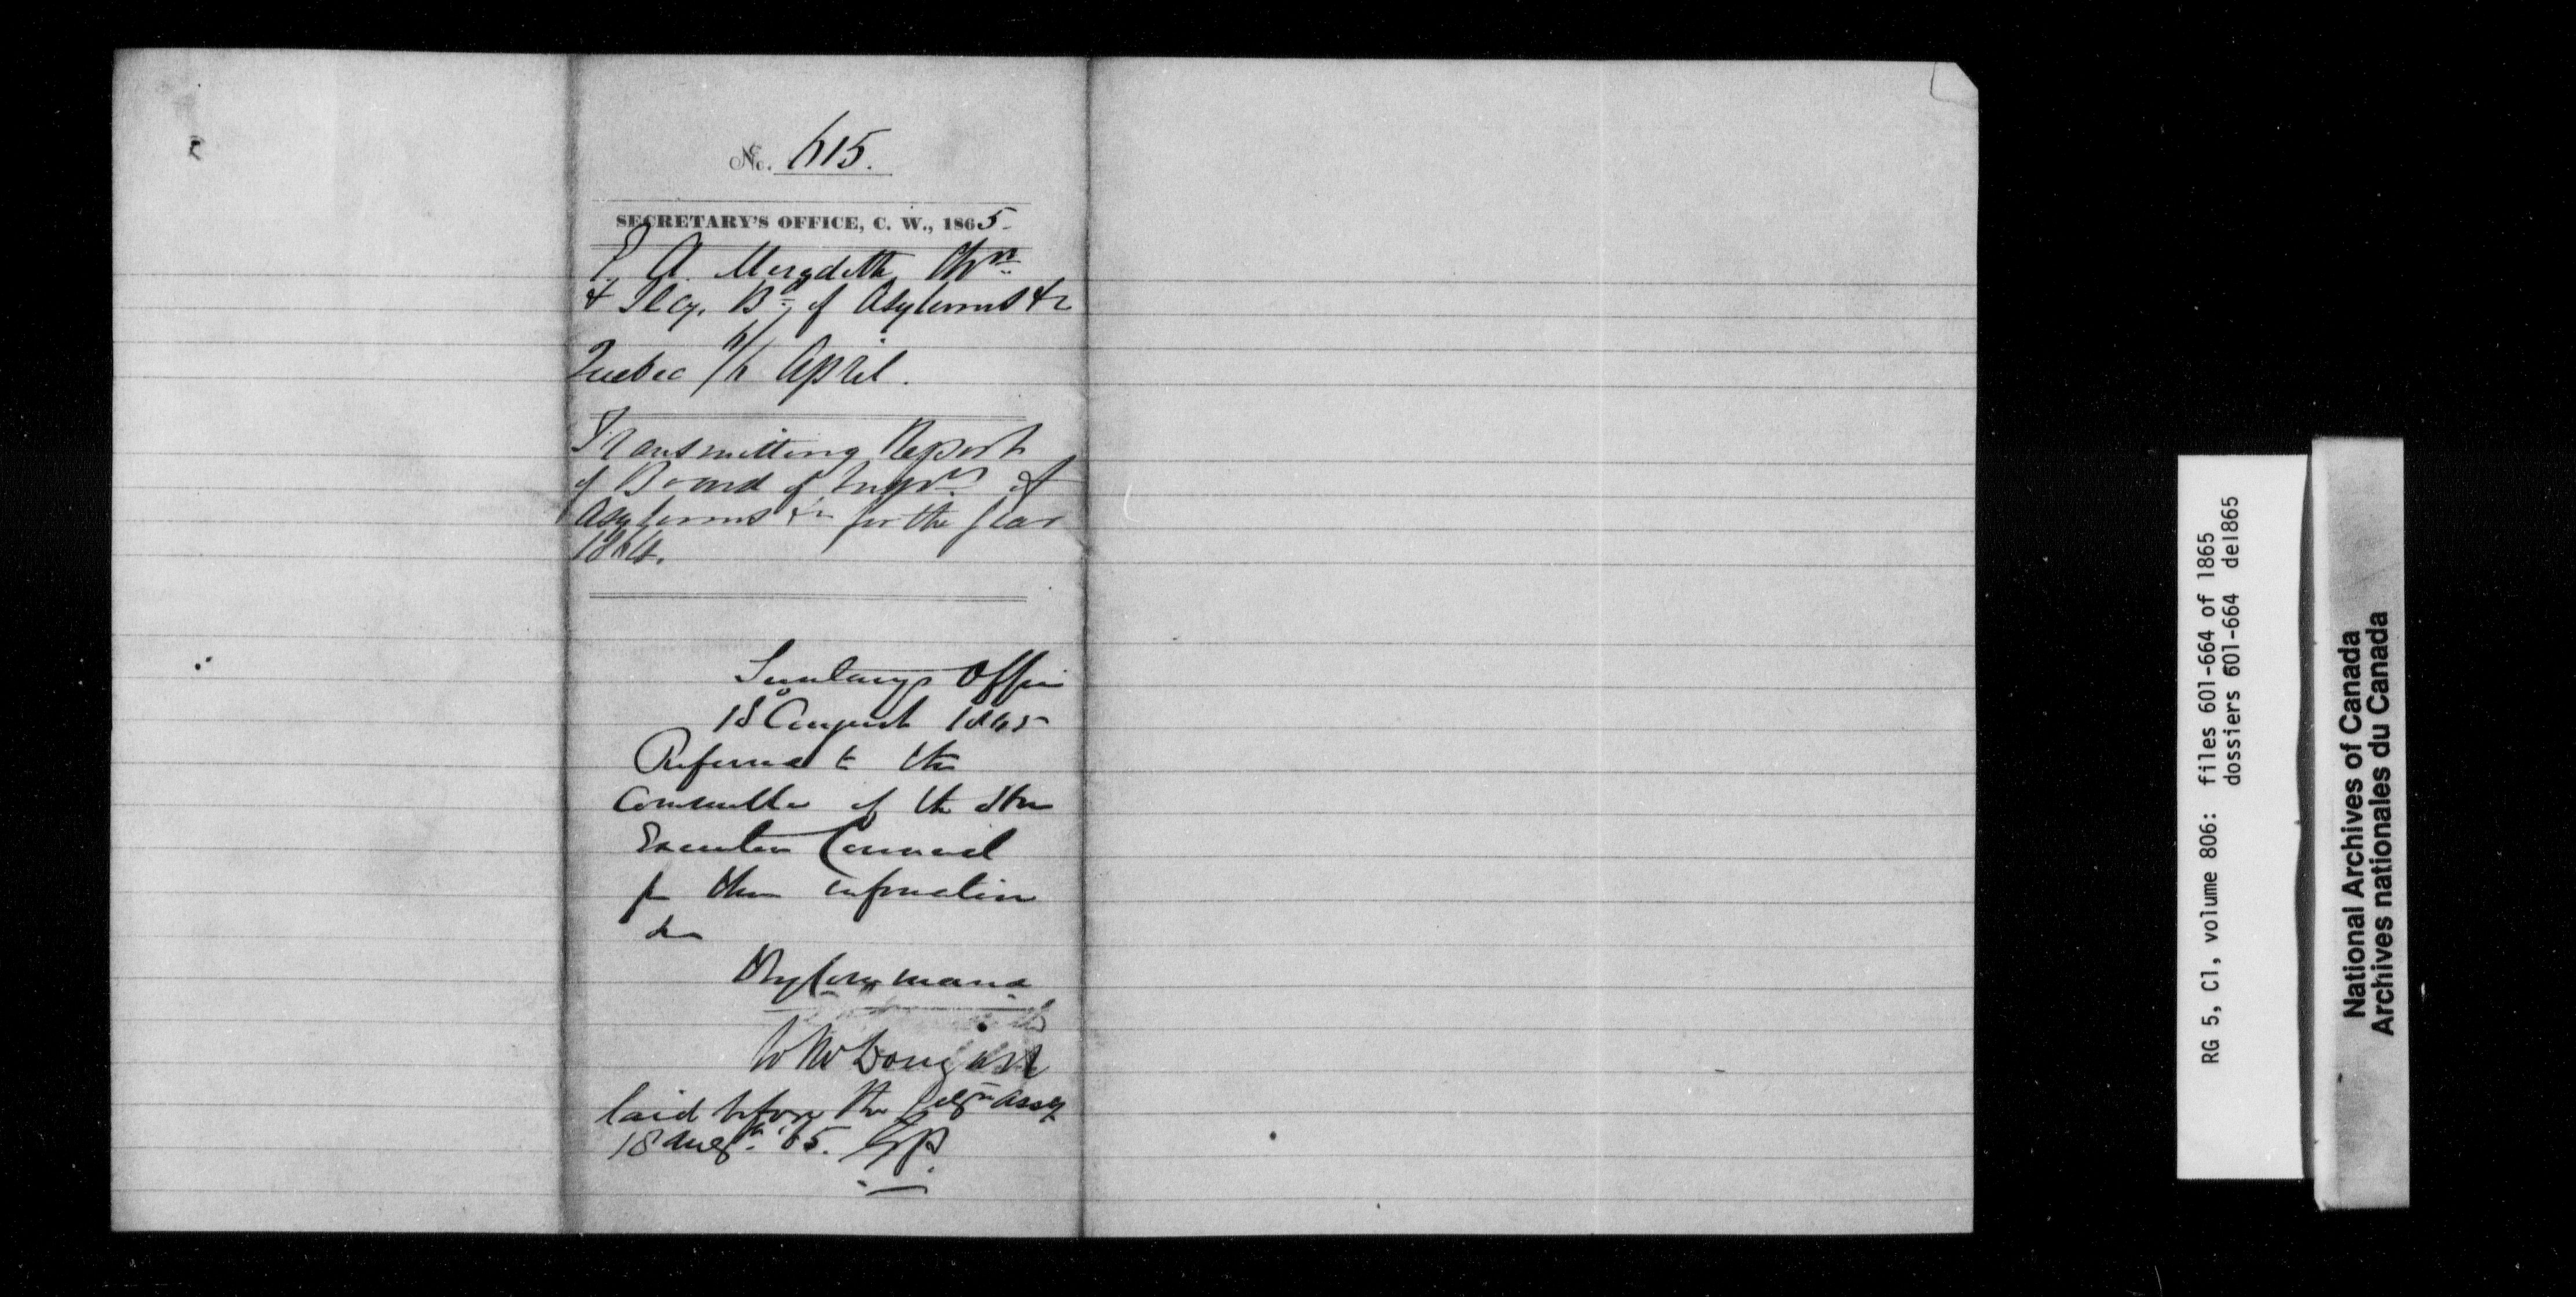 No. 615.
SECRETARY'S OFFICE, C. W., 1865
E. A. Meredith Chn
& Secy. Bd of Asylums &c
Quebec 6/6 April.
Transmitting Report
of Board of Insprs of
Asylums &c for the year
1864.
Secretary's Office
18 August 1865
Referred to the
Committee of the Hon
Executive Council
for their information
&c
By Command
W McDougall
laid before the Legve Assy
18 Augt '65. GP.
RG 5, C1, volume 806: files 601-664 of 1865
dossiers 601-664 de1865
National Archives of Canada
Archives nationales du Canada